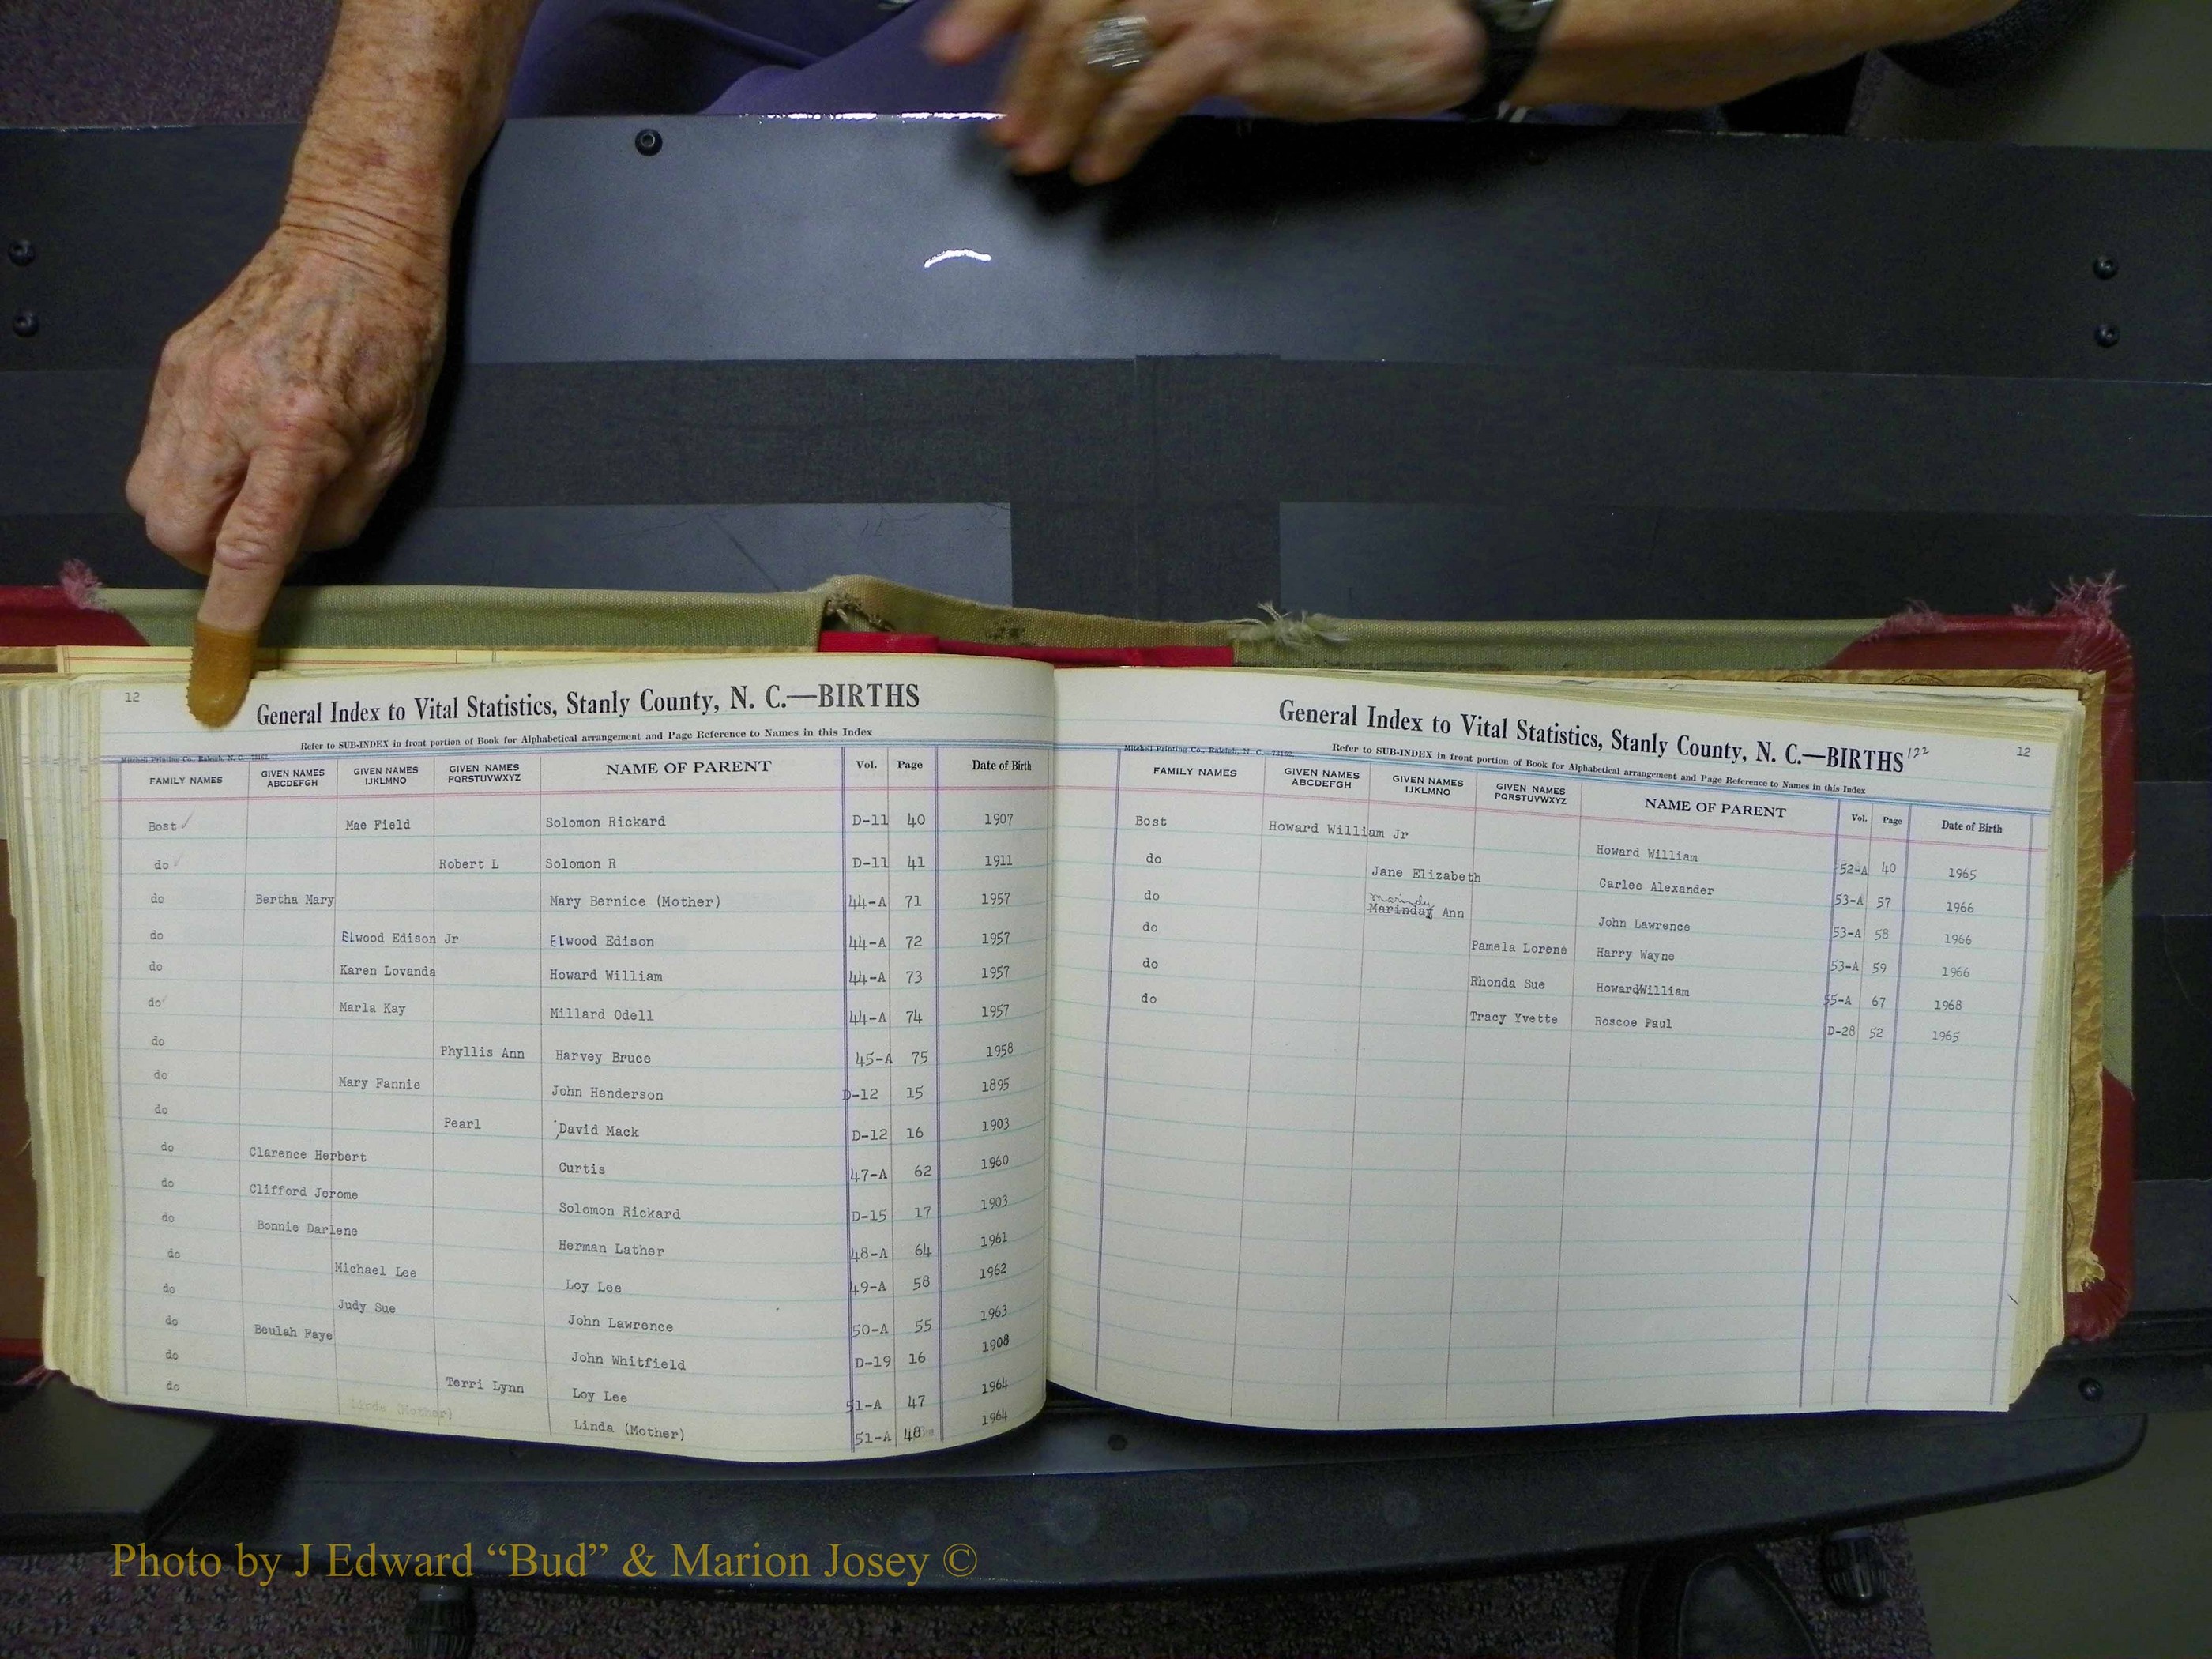 12
General Index to Vital Statistics, Stanly County, N. C.—BIRTHS
Refer to SUB-INDEX in front portion of Book for Alphabetical arrangement and Page Reference to Names in this Index
Mitchell Printing Co., Raleigh, N. C.
FAMILY NAMES GIVEN NAMES ABCDEFGH GIVEN NAMES IJKLMNO GIVEN NAMES PQRSTUVWXYZ NAME OF PARENT Vol. Page Date of Birth
Bost Mae Field Solomon Rickard D-11 40 1907
do Robert L Solomon R D-11 41 1911
do Bertha Mary Mary Bernice (Mother) 44-A 71 1957
do Elwood Edison Jr Elwood Edison 44-A 72 1957
do Karen Lovanda Howard William 44-A 73 1957
do Marla Kay Millard Odell 44-A 74 1957
do Phyllis Ann Harvey Bruce 45-A 75 1958
do Mary Fannie John Henderson D-12 15 1895
do Pearl David Mack D-12 16 1903
do Clarence Herbert Curtis 47-A 62 1960
do Clifford Jerome Solomon Rickard D-15 17 1903
do Bonnie Darlene Herman Lather 48-A 64 1961
do Michael Lee Loy Lee 49-A 58 1962
do Judy Sue John Lawrence 50-A 55 1963
do Beulah Faye John Whitfield D-19 16 1908
do Terri Lynn Loy Lee 51-A 47 1964
do Linda (Mother) Linda (Mother) 51-A 48 1964
General Index to Vital Statistics, Stanly County, N. C.—BIRTHS 122 12
Refer to SUB-INDEX in front portion of Book for Alphabetical arrangement and Page Reference to Names in this Index
Mitchell Printing Co., Raleigh, N. C.
FAMILY NAMES GIVEN NAMES ABCDEFGH GIVEN NAMES IJKLMNO GIVEN NAMES PQRSTUVWXYZ NAME OF PARENT Vol. Page Date of Birth
Bost Howard William Jr Howard William 52-A 40 1965
do Jane Elizabeth Carlee Alexander 53-A 57 1966
do Ann John Lawrence 53-A 58 1966
do Pamela Lorene Harry Wayne 53-A 59 1966
do Rhonda Sue Howard William 55-A 67 1968
do Tracy Yvette Roscoe Paul D-28 52 1965
Photo by J Edward “Bud” & Marion Josey ©